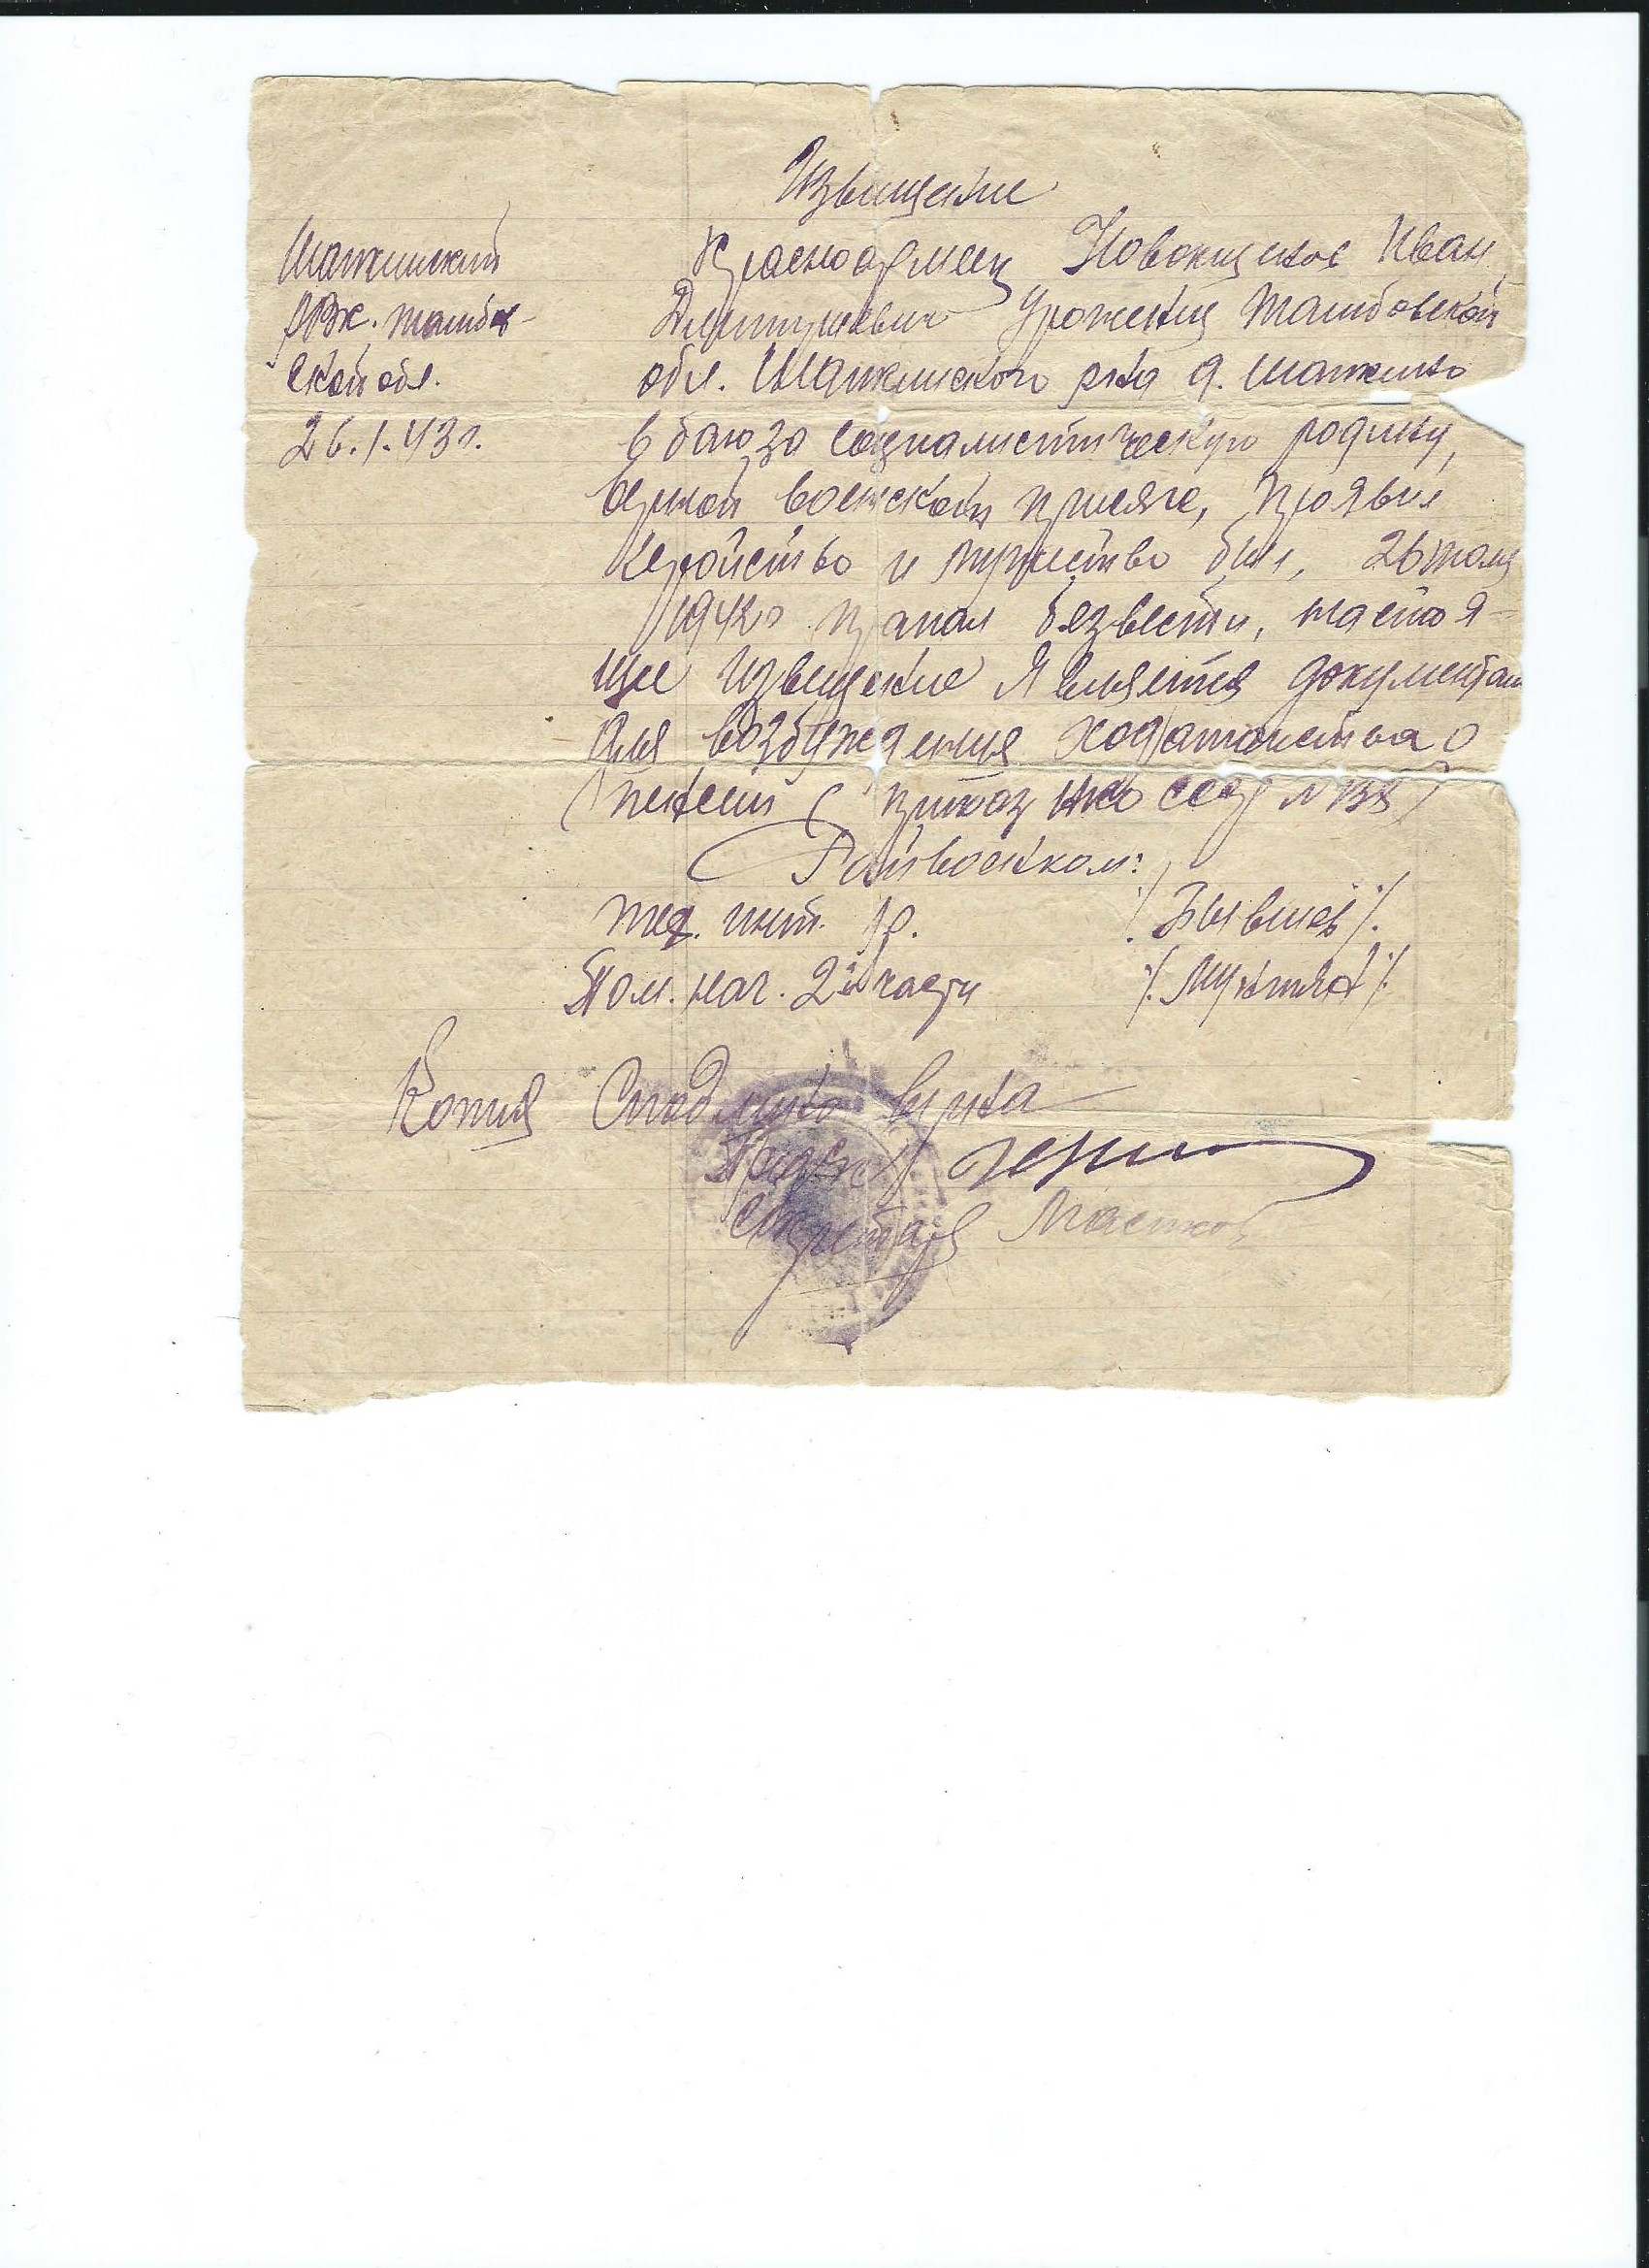 Извищение
Шапкинский
РВК. Тамбов-
ской обл.
26.1.43 г.
Красноармеец Новокщенов Иван
Дмитриевич Уроженец Тамбовской
обл. Шапкинского р-на д. Шапкино
в бою за социалистическую родину,
верной воинской присяге, проявил
геройство и мужество был, 26 мая
1942 г пропал безвести, настоя-
щее Извещение Является документом
для возбуждения ходатайства о
пенсии ( приказ НКО СССР №
Райвоенком:
тех. инт. 1 р. /. Бывшев /.
Пом. нач. 2й части
Копия с подлинно верна
Предс
Секретарь